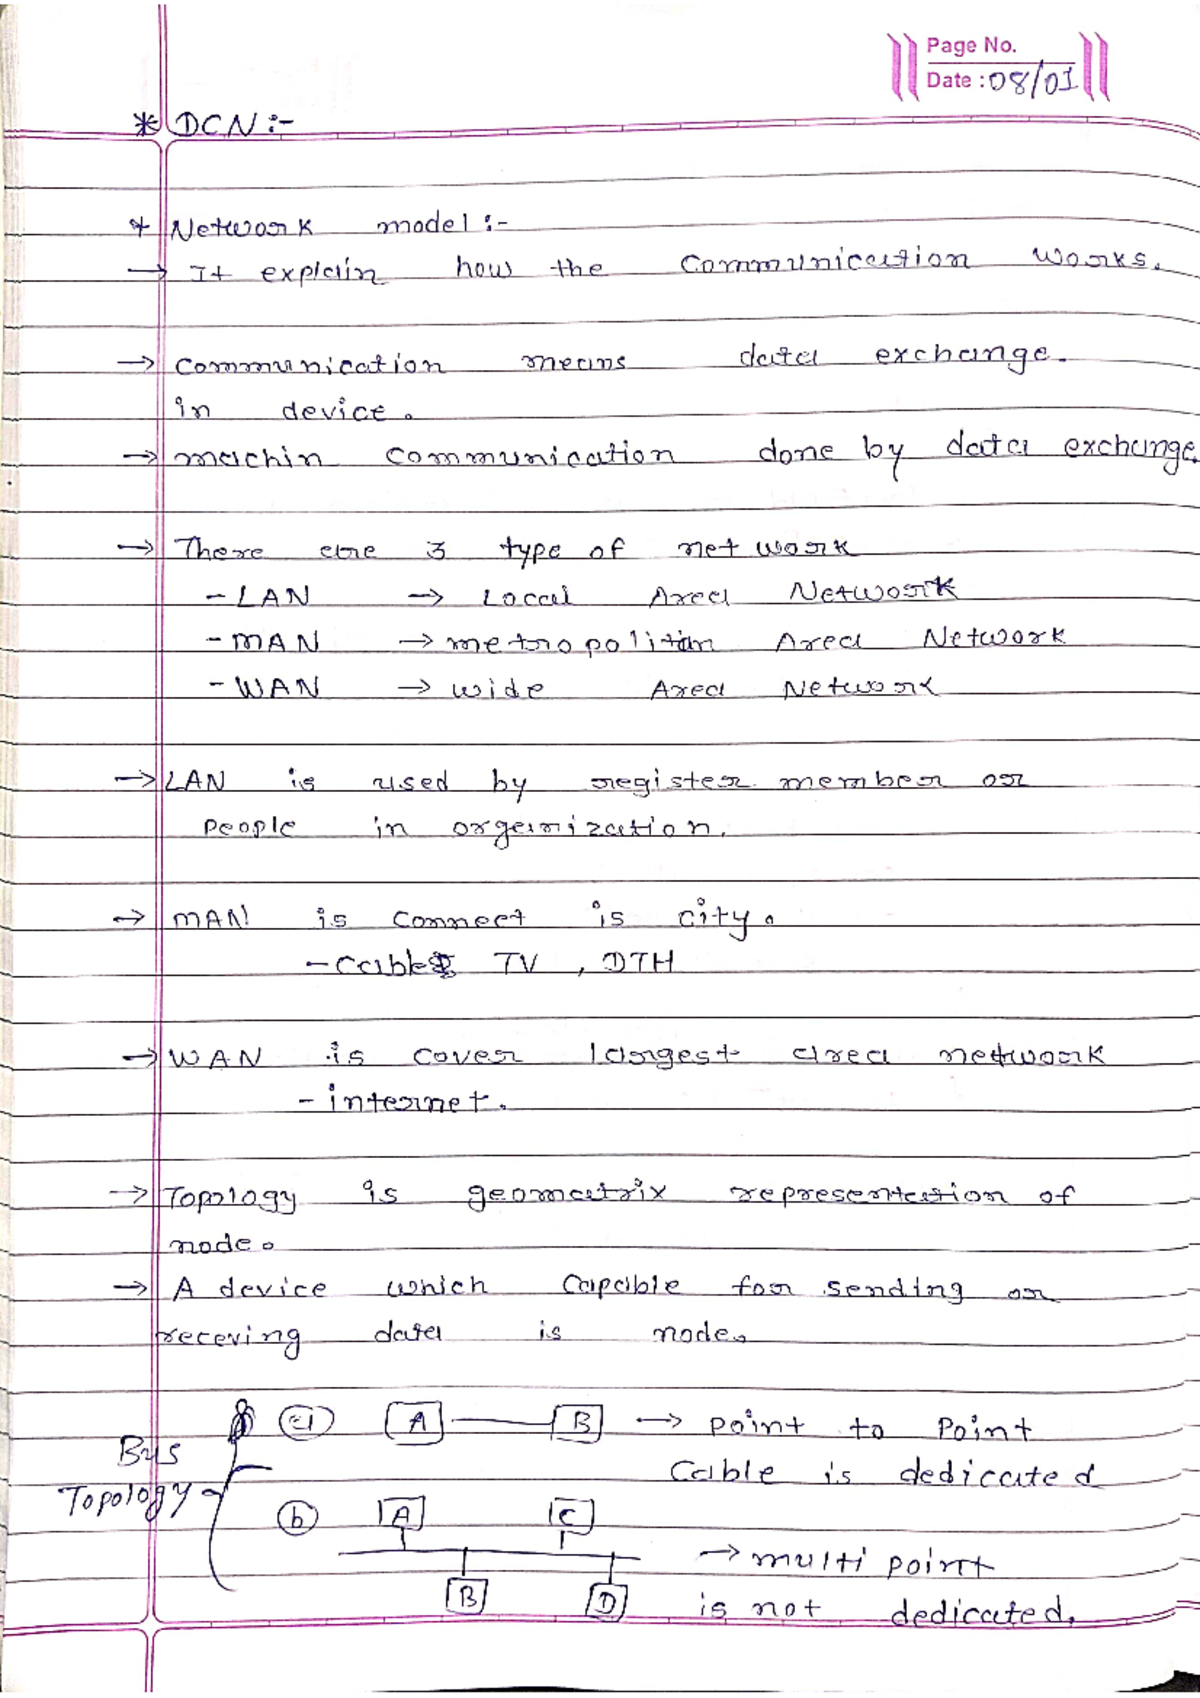 Page No.
Date : 08/01
* DCN :-
* Network model :-
→ It explain how the communication works.
→ communication means data exchange.
in device.
→ machin communication done by data exchange.
→ There are 3 type of network
- LAN → Local Area Network
- MAN → metropolitan Area Network
- WAN → wide Area Network
→ LAN is used by register member or
people in organization.
→ MAN is connect is city.
- Cable TV , DTH
→ WAN is cover largest area network
- internet.
→ Topology is geomatrix representation of
node.
→ A device which capable for sending or
receving data is node.
a A B → point to point
Cable is dedicated
Bus
Topology
b A C
→ multi point
B D
is not dedicated.